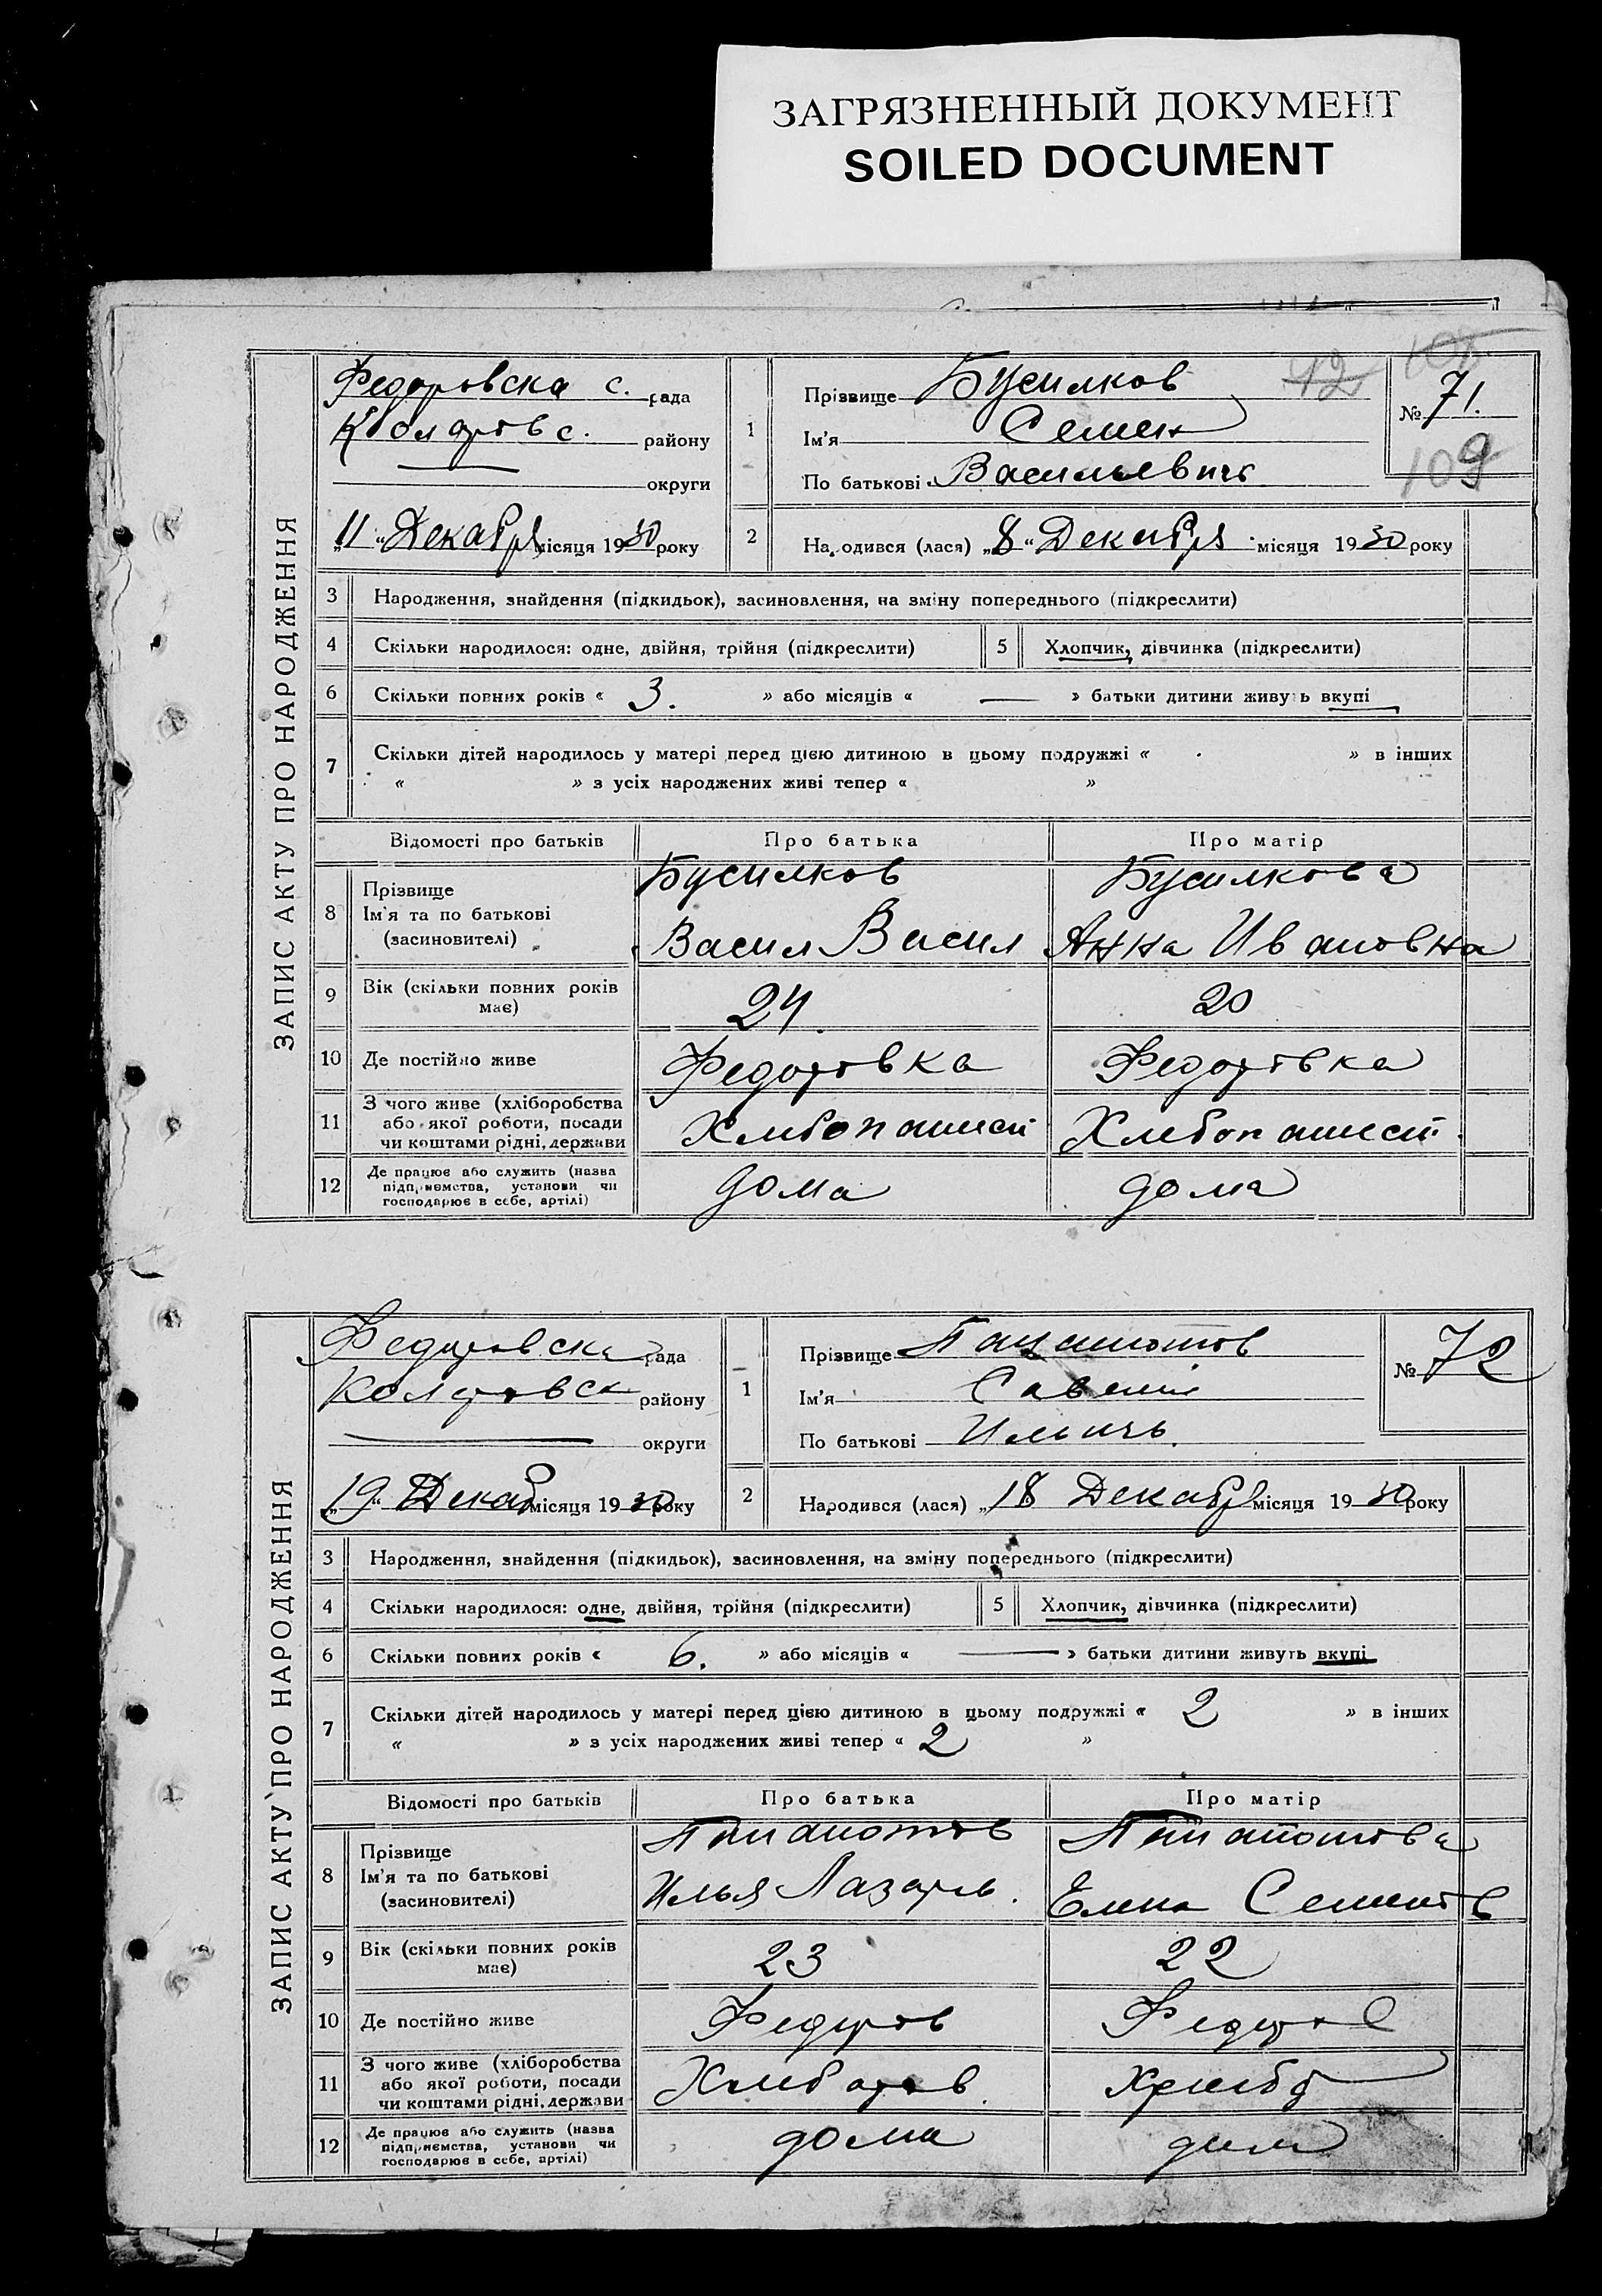 ЗАГРЯЗНЕННЫЙ ДОКУМЕНТ
SOILED DOCUMENT
ЗАПИС АКТУ ПРО НАРОДЖЕННЯ
Федоровска с. рада
Коларовс. району
округи
„11“ Декабря місяця 1930 року
1
Прізвище Бусилков
Ім'я Семен
По батькові Васильевичь
12
№ 71.
109
2
Народився (лася) „8“ Декабря місяця 1930 року
3 Народження, знайдення (підкидьок), засиновлення, на зміну попереднього (підкреслити)
4 Скільки народилося: одне, двійня, трійня (підкреслити) 5 Хлопчик, дівчинка (підкреслити)
6 Скільки повних років « 3. » або місяців « — » батьки дитини живуть вкупі
7 Скільки дітей народилось у матері перед цією дитиною в цьому подружжі « » в інших
« » з усіх народжених живі тепер « »
Відомості про батьків Про батька Про матір
8 Прізвище Ім'я та по батькові (засиновителі)
Бусилков Бусилкова
Васил Васил Анна Ивановна
9 Вік (скільки повних років має) 24 20
10 Де постійно живе Федоровка Федоровка
11 З чого живе (хліборобства або якої роботи, посади чи коштами рідні, держави
12 Де працює або служить (назва підприємства, установи чи господарює в себе, артілі) дома дома
ЗАПИС АКТУ ПРО НАРОДЖЕННЯ
Федоровска рада
Коларовск району
округи
„19“ Декаб місяця 1930 року
1
Прізвище
Ім'я Савелий
По батькові Ильичь
№ 72
2
Народився (лася) „18 Декабря місяця 1930 року
3 Народження, знайдення (підкидьок), засиновлення, на зміну попереднього (підкреслити)
4 Скільки народилося: одне, двійня, трійня (підкреслити) 5 Хлопчик, дівчинка (підкреслити)
6 Скільки повних років « 6. » або місяців « — » батьки дитини живуть вкупі
7 Скільки дітей народилось у матері перед цією дитиною в цьому подружжі « 2 » в інших
« » з усіх народжених живі тепер « 2 »
Відомості про батьків Про батька Про матір
8 Прізвище Ім'я та по батькові (засиновителі)
Илья Лазарь. Елена Семенов
9 Вік (скільки повних років має) 23 22
10 Де постійно живе Федоров Федоров
11 З чого живе (хліборобства або якої роботи, посади чи коштами рідні, держави
12 Де працює або служить (назва підприємства, установи чи господарює в себе, артілі) дома дома